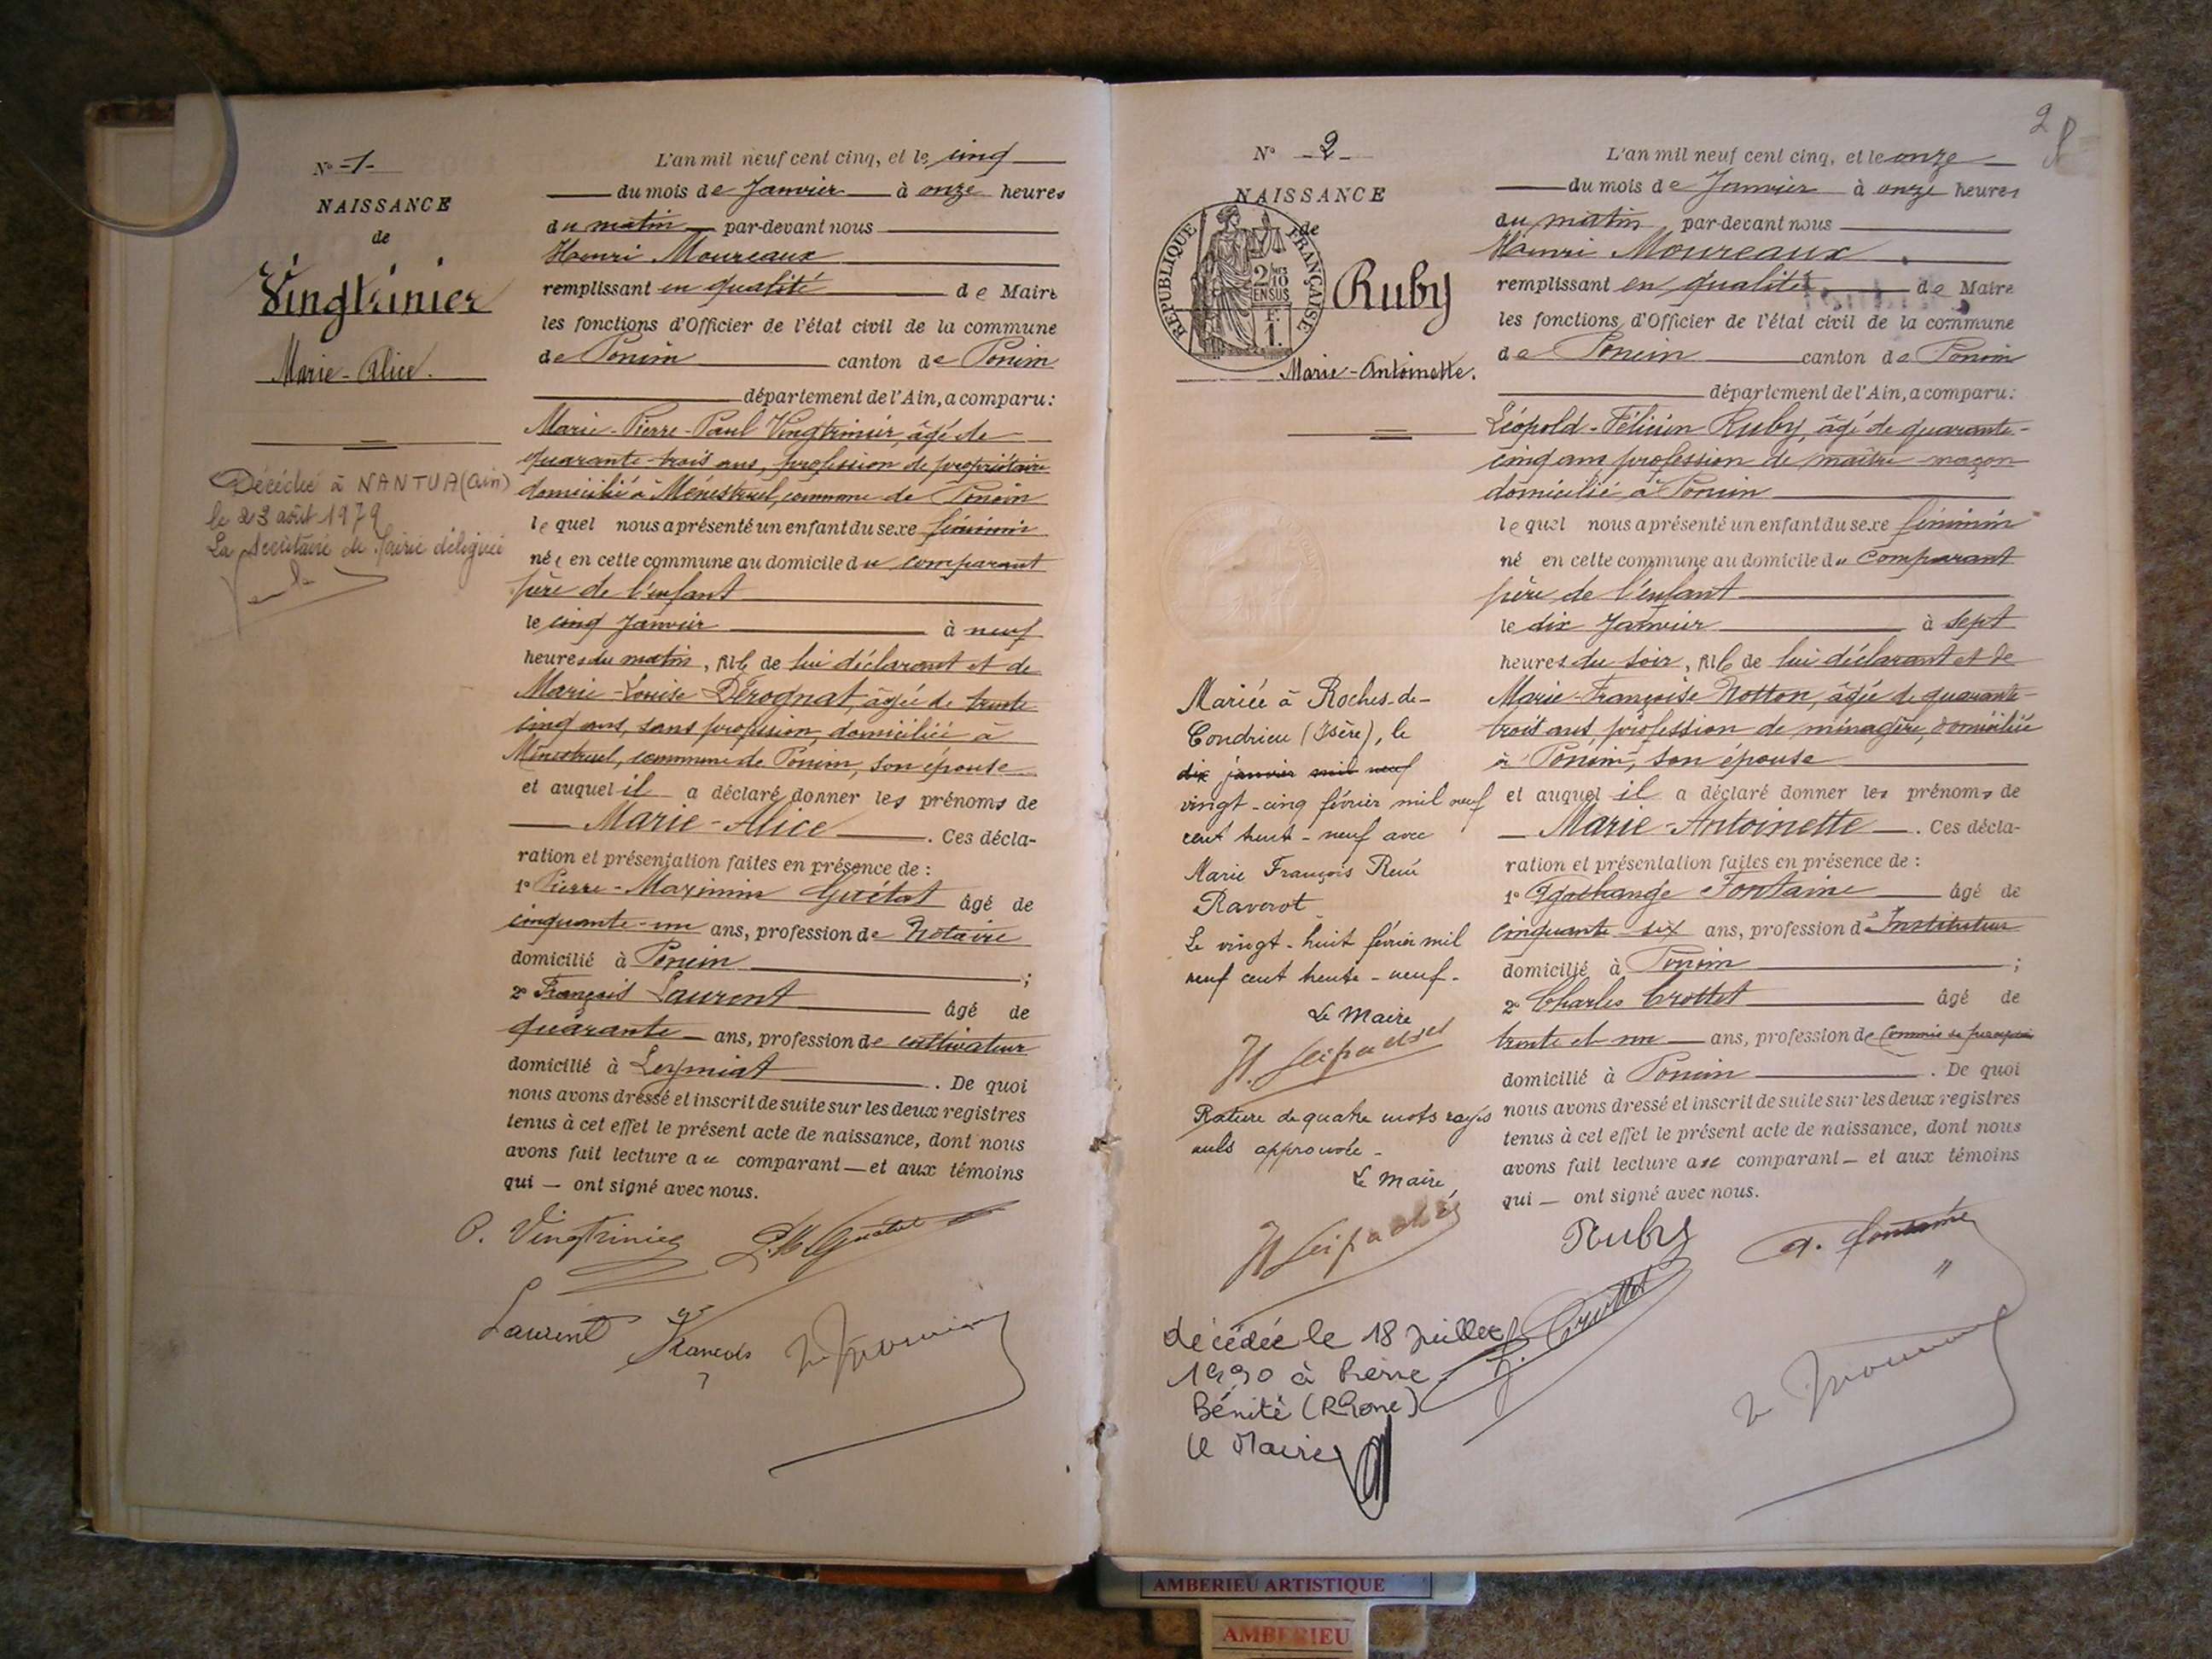 N° -1-
NAISSANCE
de
Vingtrinier
Marie-Alice.
Décédée à NANTUA (Ain)
le 23 août 1979
La Secrétaire de Mairie déléguée
L'an mil neuf cent cinq, et le cinq
du mois de Janvier à onze heures
du matin par-devant nous
Henri Moureaux
remplissant en qualité de Maire
les fonctions d'Officier de l'état civil de la commune
de Poncin canton de Poncin
département de l'Ain, a comparu:
Marie-Pierre-Paul Vingtrinier, âgé de
quarante-trois ans, profession de propriétaire
domicilié à Ménestruel, commune de Poncin
lequel nous a présenté un enfant du sexe féminin
née en cette commune au domicile du comparant
père de l'enfant
le cinq Janvier à neuf
heures du matin, fille de lui déclarant et de
Marie-Louise Dérognat, âgée de trente-
cinq ans, sans profession, domiciliée à
Ménestruel, commune de Poncin, son épouse
et auquel il a déclaré donner les prénoms de
Marie-Alice. Ces décla-
ration et présentation faites en présence de :
1° Pierre-Maximin Guétat âgé de
cinquante-un ans, profession de Notaire
domicilié à Poncin ;
2° François Laurent âgé de
quarante ans, profession de cultivateur
domicilié à Leymiat. De quoi
nous avons dressé et inscrit de suite sur les deux registres
tenus à cet effet le présent acte de naissance, dont nous
avons fait lecture au comparant — et aux témoins
qui — ont signé avec nous.
P. Vingtrinier
Laurent François
2
N° -2-
NAISSANCE
de
REPUBLIQUE FRANÇAISE
2/10
EN SUS
F.
1.
Ruby
Marie-Antoinette.
Mariée à Roches-de-
Condrieu (Isère), le
dix janvier mil neuf
vingt-cinq février mil neuf
cent trente-neuf avec
Marie François René
Raverot
Le vingt-huit février mil
neuf cent trente-neuf.
Le Maire
Rature de quatre mots rayés
nuls approuvée -
Le Maire,
décédée le 18 Juillet
1990 à Pierre
Bénite (Rhone)
Le Maire
L'an mil neuf cent cinq, et le onze
du mois de Janvier à onze heures
du matin par-devant nous
Henri Moureaux
remplissant en qualité de Maire
les fonctions d'Officier de l'état civil de la commune
de Poncin canton de Poncin
département de l'Ain, a comparu:
Léopold-Félicien Ruby, âgé de quarante-
cinq ans, profession de maître maçon
domicilié à Poncin
lequel nous a présenté un enfant du sexe féminin
né en cette commune au domicile du comparant
père de l'enfant
le dix Janvier à sept
heures du soir, fille de lui déclarant et de
Marie-Françoise Notton, âgée de quarante-
trois ans, profession de ménagère, domiciliée
à Poncin, son épouse
et auquel il a déclaré donner les prénoms de
Marie-Antoinette. Ces décla-
ration et présentation faites en présence de :
1° Fontaine âgé de
cinquante-six ans, profession d'Instituteur
domicilié à Poncin ;
2° Charles Crottet âgé de
trente et un ans, profession de commis de perception
domicilié à Poncin. De quoi
nous avons dressé et inscrit de suite sur les deux registres
tenus à cet effet le présent acte de naissance, dont nous
avons fait lecture au comparant — et aux témoins
qui — ont signé avec nous.
Ruby
a. fontaine
Crottet
AMBERIEU ARTISTIQUE
AMBERIEU